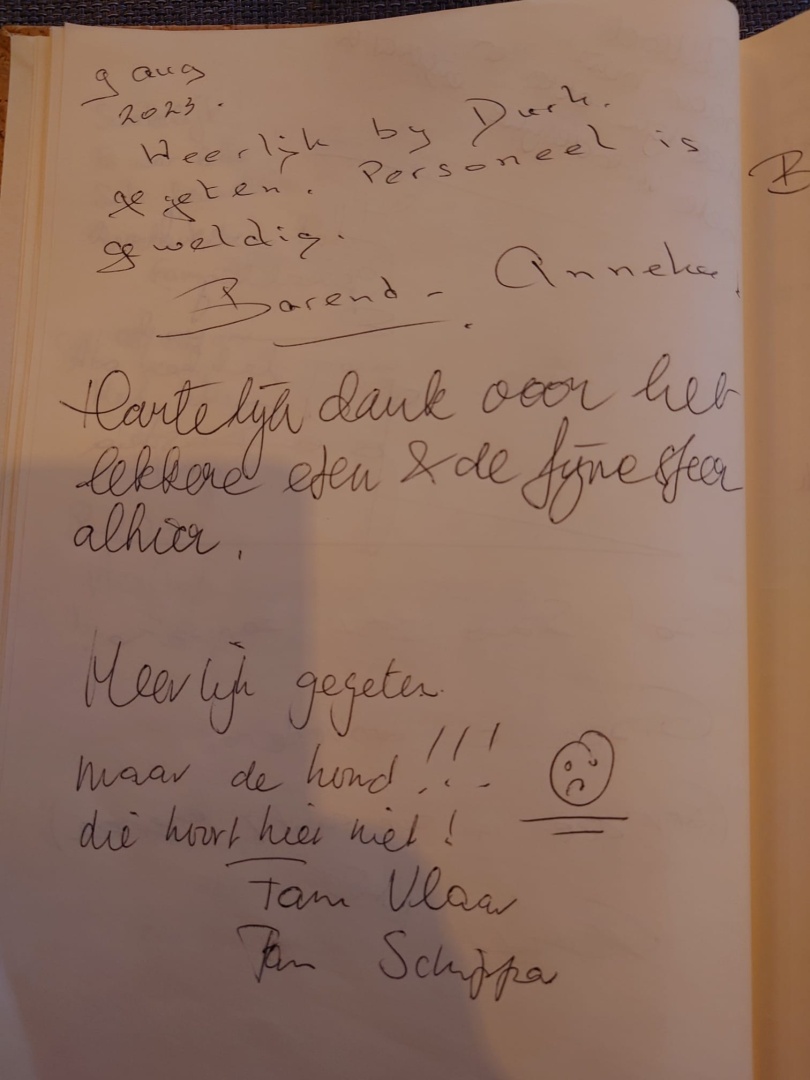 9 aug
2023.
Heerlijk by Durk.
gegeten. Personeel is
geweldig.
Barend - Anneke.
Hartelijk dank voor het
lekkere eten & de fijne sfeer
alhier.
Heerlijk gegeten
maar de hond!!!
die hoort hier niet!
Fam Vlaar
Fam Schipper
B